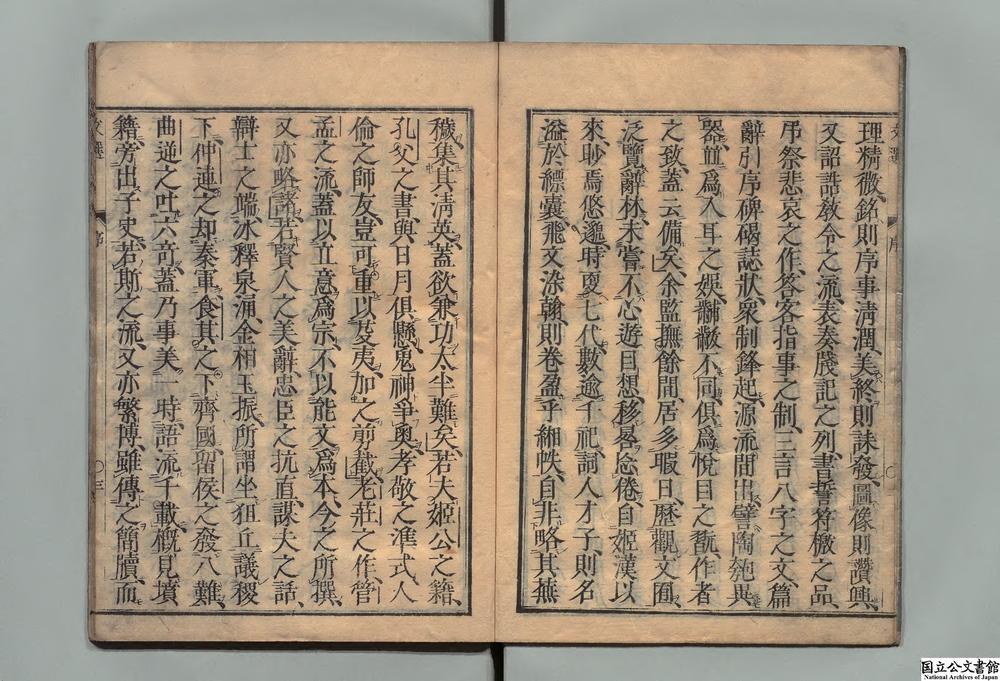 理精微銘則序事清潤美終則誄發圖像則讚興
又詔誥教令之流表奏牋記之列書誓符檄之品
弔祭悲哀之作答客指事之制三言八字之文篇
辭引序碑碣誌狀衆制鋒起源流間出譬陶匏異
器並爲入耳之娯黼黻不同俱爲悅目之翫作者
之致蓋云備矣余監撫餘閒居多暇日歷觀文囿
泛覽辭林未嘗不心遊目想移晷忘倦自姬漢以
來眇焉悠邈時更七代數逾千祀詞人才子則名
溢於縹囊飛文染翰則卷盈乎緗帙自非略其蕪
穢集其淸英蓋欲兼功太半難矣若夫姬公之籍
孔父之書與日月俱懸鬼神爭奧孝敬之准式人
倫之師友豈可重以芟夷加之剪截老莊之作管
孟之流蓋以立意爲宗不以能文爲本今之所撰
又亦略諸若賢人之美辭忠臣之抗直謀夫之話
辯士之端冰釋泉涌金相玉振所謂坐狙丘議稷
下仲連之却秦軍食其之下齊國留侯之發八難
曲逆之吐六奇蓋乃事美一時語流千載概見墳
籍旁出子史若斯之流又亦繁博雖傳之簡牘而
文選
序
〇三
国立公文書館
National Archives of Japan